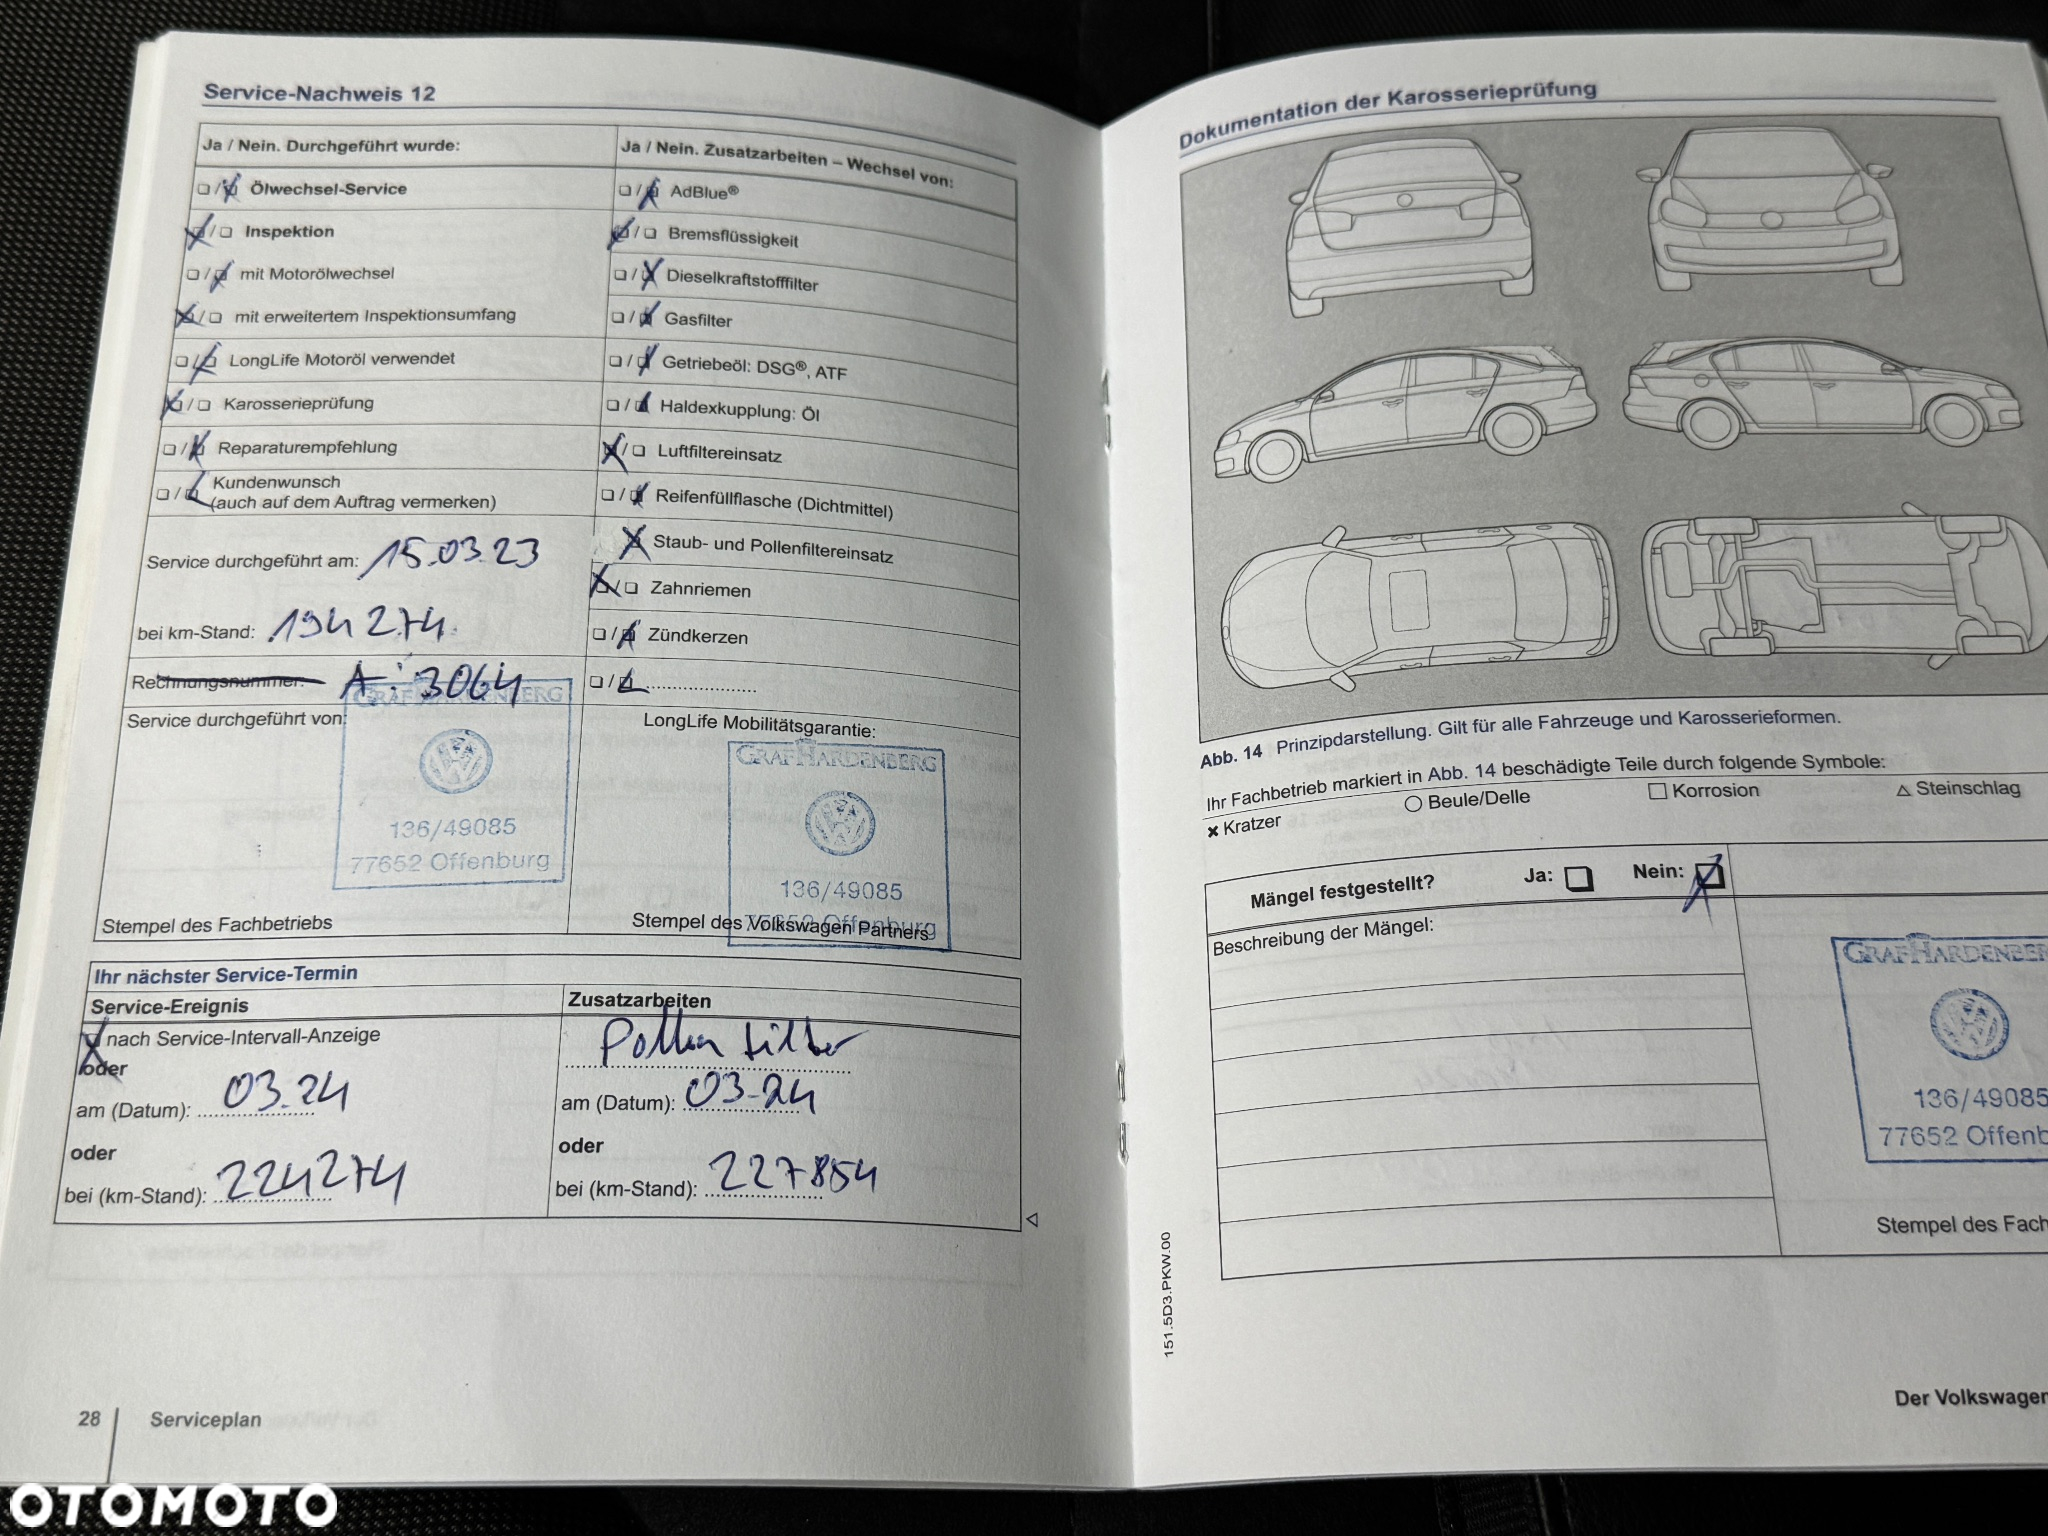 Service-Nachweis 12
Ja / Nein. Durchgeführt wurde:
❏/❏ Ölwechsel-Service
❏/❏ Inspektion
❏/❏ mit Motorölwechsel
❏/❏ mit erweitertem Inspektionsumfang
❏/❏ LongLife Motoröl verwendet
❏/❏ Karosserieprüfung
❏/❏ Reparaturempfehlung
❏/❏ Kundenwunsch
(auch auf dem Auftrag vermerken)
Service durchgeführt am: 15.03.23
bei km-Stand: 194274
Rechnungsnummer: A: 3064
Ja / Nein. Zusatzarbeiten – Wechsel von:
❏/❏ AdBlue®
❏/❏ Bremsflüssigkeit
❏/❏ Dieselkraftstofffilter
❏/❏ Gasfilter
❏/❏ Getriebeöl: DSG®, ATF
❏/❏ Haldexkupplung: Öl
❏/❏ Luftfiltereinsatz
❏/❏ Reifenfüllflasche (Dichtmittel)
Staub- und Pollenfiltereinsatz
❏/❏ Zahnriemen
❏/❏ Zündkerzen
❏/❏ ....................
Service durchgeführt von:
GRAF HARDENBERG
136/49085
77652 Offenburg
Stempel des Fachbetriebs
LongLife Mobilitätsgarantie:
GRAF HARDENBERG
136/49085
77652 Offenburg
Stempel des Volkswagen Partners
Ihr nächster Service-Termin
Service-Ereignis
nach Service-Intervall-Anzeige
oder
am (Datum): 03.24
oder
bei (km-Stand): 224274
Zusatzarbeiten
Pollenfilter
am (Datum): 03-24
oder
bei (km-Stand): 227854
28 Serviceplan
Dokumentation der Karosserieprüfung
Abb. 14 Prinzipdarstellung. Gilt für alle Fahrzeuge und Karosserieformen.
Ihr Fachbetrieb markiert in Abb. 14 beschädigte Teile durch folgende Symbole:
✖ Kratzer ○ Beule/Delle □ Korrosion △ Steinschlag
Mängel festgestellt? Ja: ❏ Nein: ❏
Beschreibung der Mängel:
GRAF HARDENBER
136/49085
77652 Offenb
Stempel des Fach
151.5D3.PKW.00
Der Volkswagen
OTOMOTO